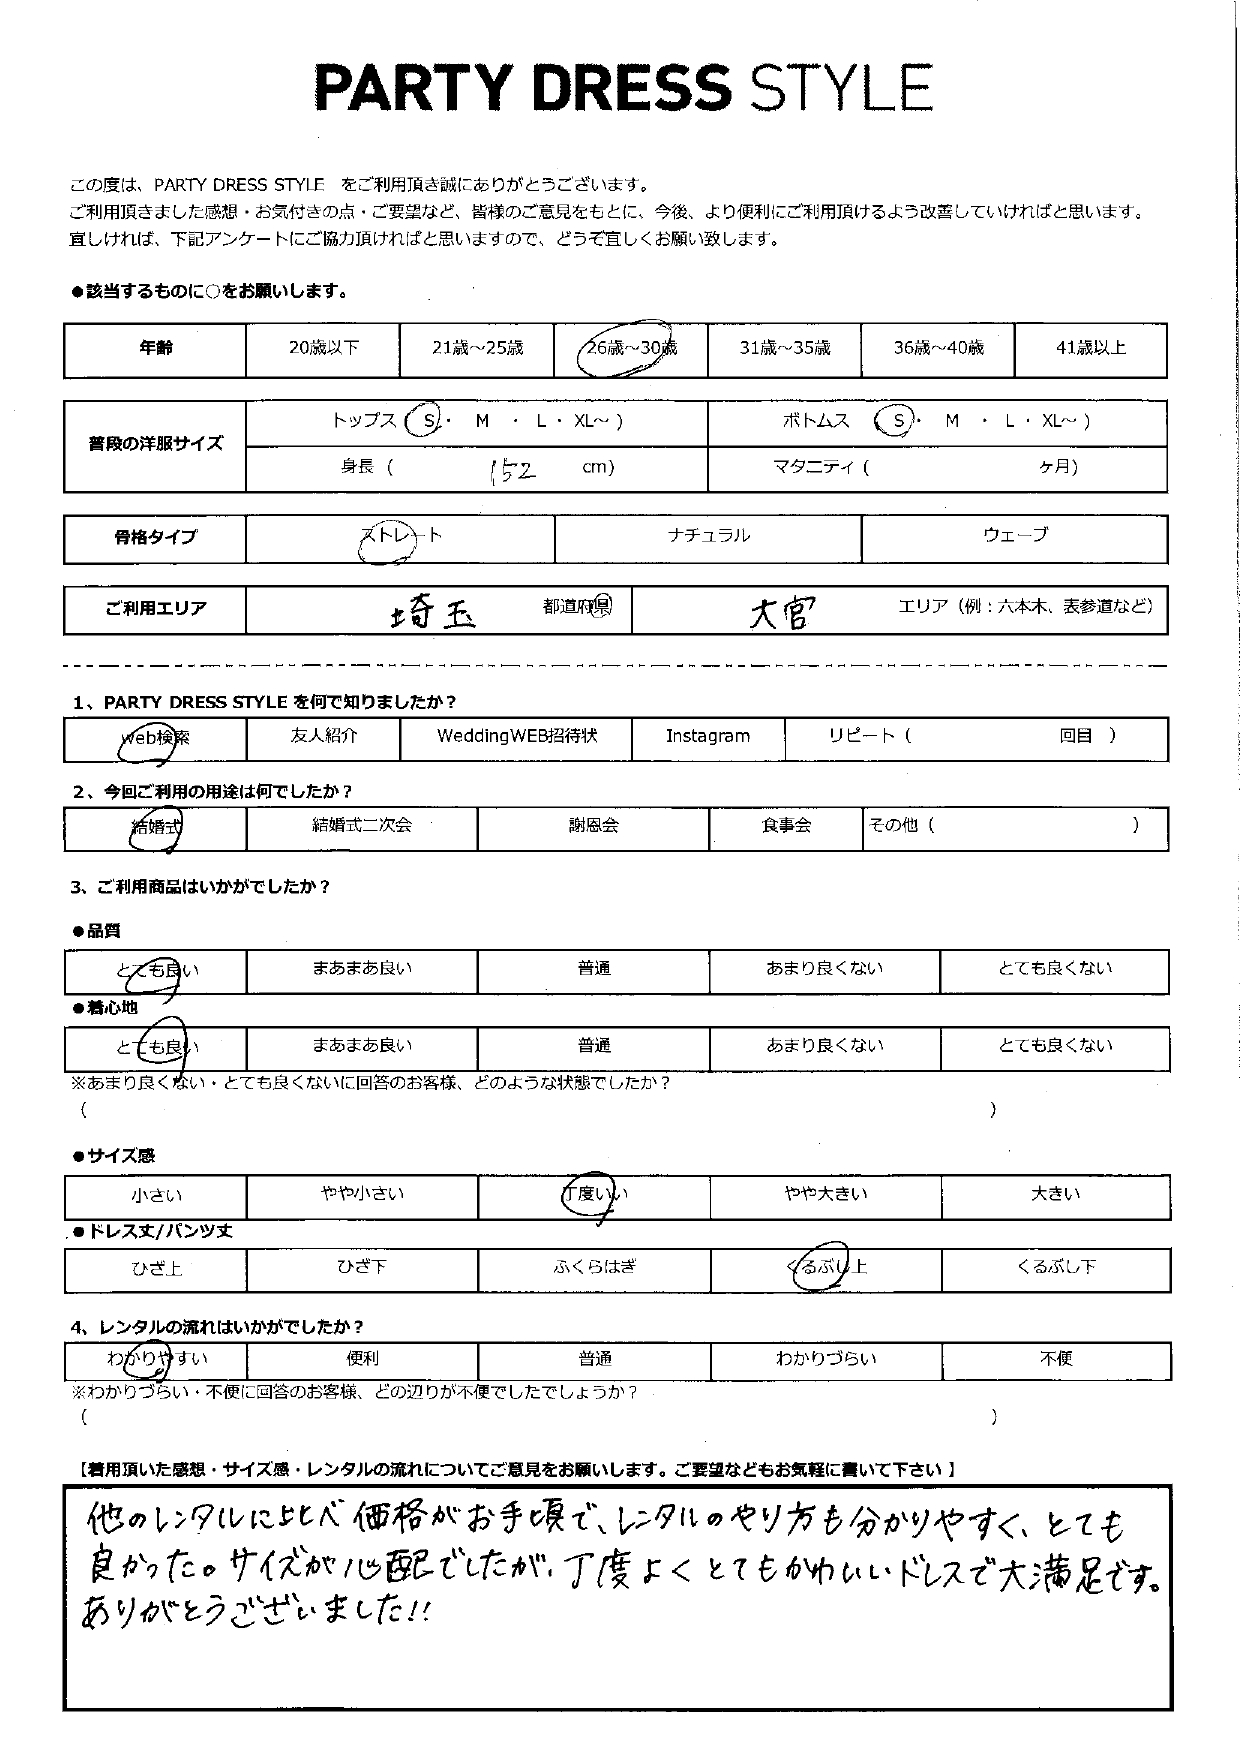 PARTY DRESS STYLE
この度は、PARTY DRESS STYLE をご利用頂き誠にありがとうございます。
ご利用頂きました感想・お気付きの点・ご要望など、皆様のご意見をもとに、今後、より便利にご利用頂けるよう改善していければと思います。
宜しければ、下記アンケートにご協力頂ければと思いますので、どうぞ宜しくお願い致します。
●該当するものに○をお願いします。
年齢 20歳以下 21歳～25歳 26歳～30歳 31歳～35歳 36歳～40歳 41歳以上
普段の洋服サイズ
トップス（ S ・ M ・ L ・ XL～ ） ボトムス （ S ・ M ・ L ・ XL～ ）
身長（ 152 cm） マタニティ（ ケ月）
骨格タイプ ストレート ナチュラル ウェーブ
ご利用エリア 埼玉 都道府県 大宮 エリア（例：六本木、表参道など）
1、PARTY DRESS STYLE を何で知りましたか？
web検索 友人紹介 WeddingWEB招待状 Instagram リピート（ 回目 ）
2、今回ご利用の用途は何でしたか？
結婚式 結婚式二次会 謝恩会 食事会 その他（ ）
3、ご利用商品はいかがでしたか？
●品質
とても良い まあまあ良い 普通 あまり良くない とても良くない
●着心地
とても良い まあまあ良い 普通 あまり良くない とても良くない
※あまり良くない・とても良くないに回答のお客様、どのような状態でしたか？
（ ）
●サイズ感
小さい やや小さい 丁度いい やや大きい 大きい
●ドレス丈/パンツ丈
ひざ上 ひざ下 ふくらはぎ くるぶし上 くるぶし下
4、レンタルの流れはいかがでしたか？
わかりやすい 便利 普通 わかりづらい 不便
※わかりづらい・不便に回答のお客様、どの辺りが不便でしたでしょうか？
（ ）
【着用頂いた感想・サイズ感・レンタルの流れについてご意見をお願いします。ご要望などもお気軽に書いて下さい 】
他のレンタルに比べ価格がお手頃で、レンタルのやり方も分かりやすく、とても
良かった。サイズが心配でしたが、丁度よくとてもかわいいドレスで大満足です。
ありがとうございました!!